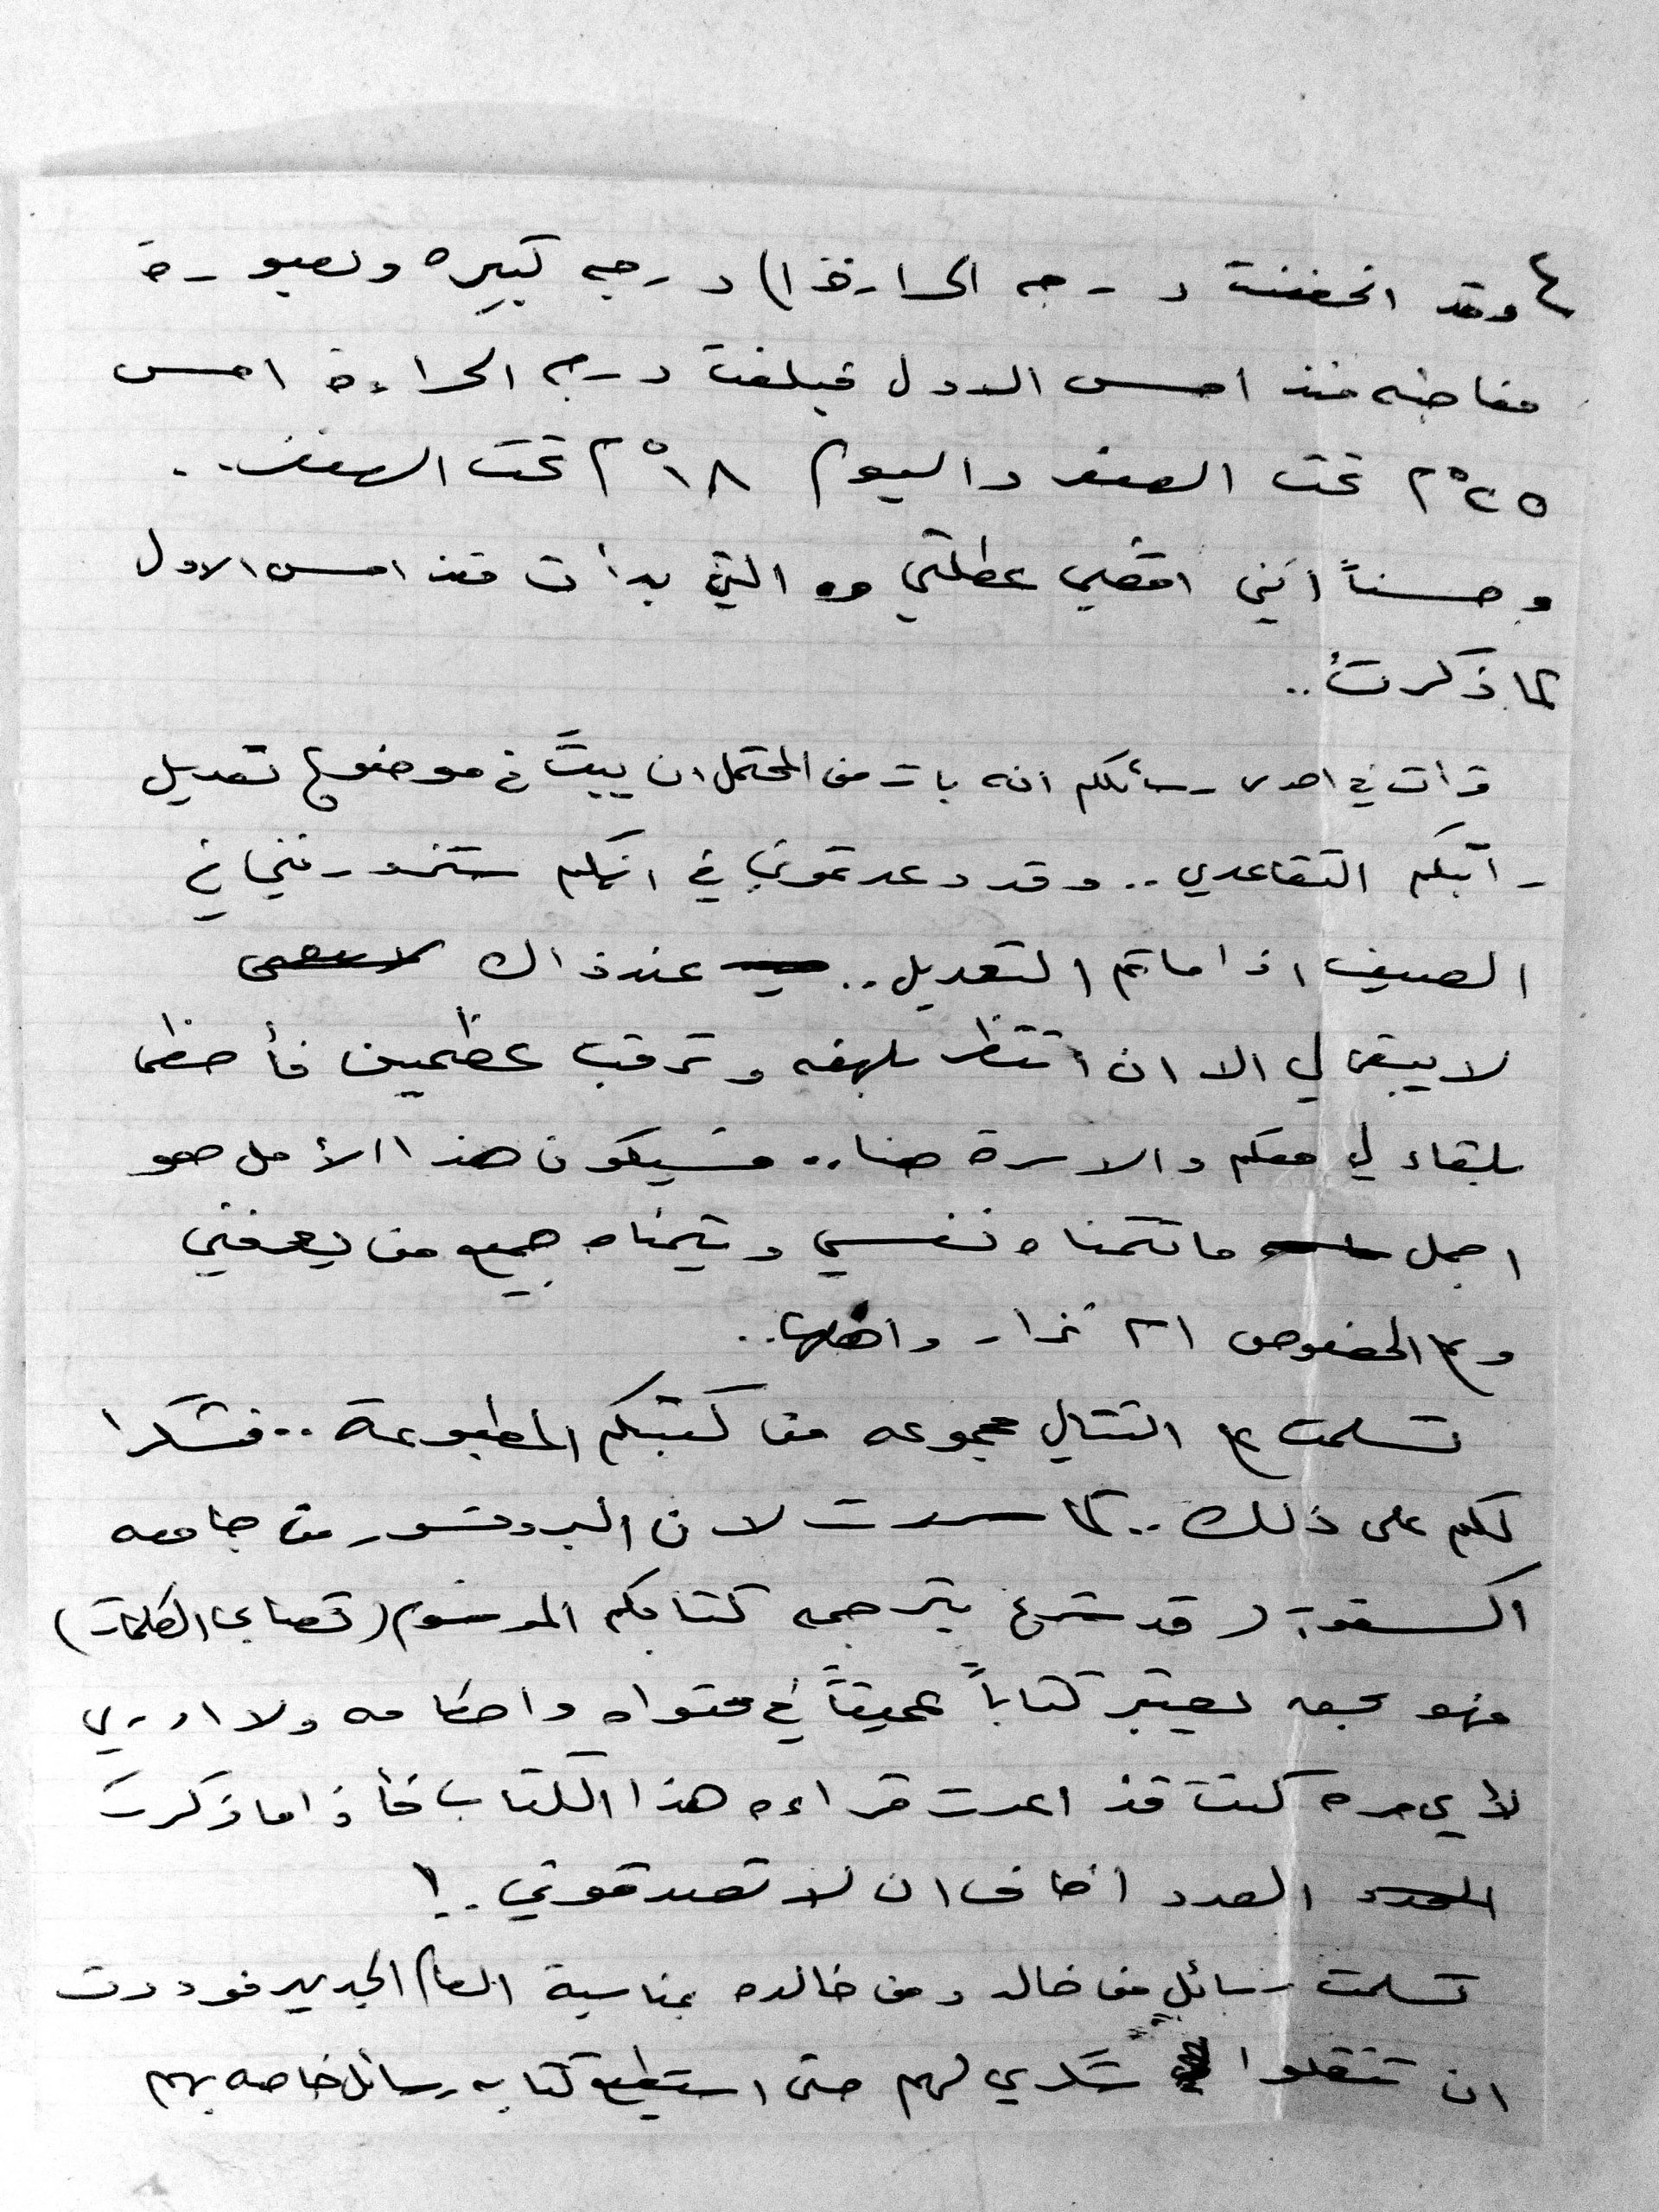 وقد انخفضت درجه الحرارة درجه كبيره وبصورة
مفاجئه منذ امس الاول فبلغت درجه الحرارة امس
٢٥°م تحت الصفر واليوم ١٨°م تحت الصفر..
وحسناً أنني اقضي عطلتي التي بدأت منذ امس الاول
كما ذكرتُ..
قرأت في احدى رسائلكم انه بات من المحتمل ان يبتَّ في موضوع تعديل
راتبكم التقاعدي.. وقد وعدتموني في انكم ستزورنني في
الصيف اذا ماتم التعديل.. عندذاك
لا يبقى لي الا ان أنتظر بلهفه وترقب عظيمين فأحظى
بلقاء لي معكم والاسرة هنا.. فسيكون هذا الأمل هو
اجمل ماتتمناه نفسي ويتمناه جميع من يعرفني
وع الخصوص نزار واهلها..
تسلمت ع التتالي مجموعه من كتبكم المطبوعة.. فشكرا
لكم على ذلك.. كما سررت لان البروفسور من جامعه
اكسفورد قد شرع بترجمه كتابكم الموسوم (تصابى الكلمات)
فهو بحق يعتبر كتاباً عميقاً في محتواه واحكامه ولا ادري
لأي مره كنت قد اعدت قراءه هذا الكتاب فأذا ماذكرت
العدد اخاف ان لا تصدقوني.!
تسلمت رسائل من خالد ومن خالده بمناسبة العام الجديد فوددت
ان تنقلوا شكري لهم حتى استطيع كتابه رسائل خاصه بهم